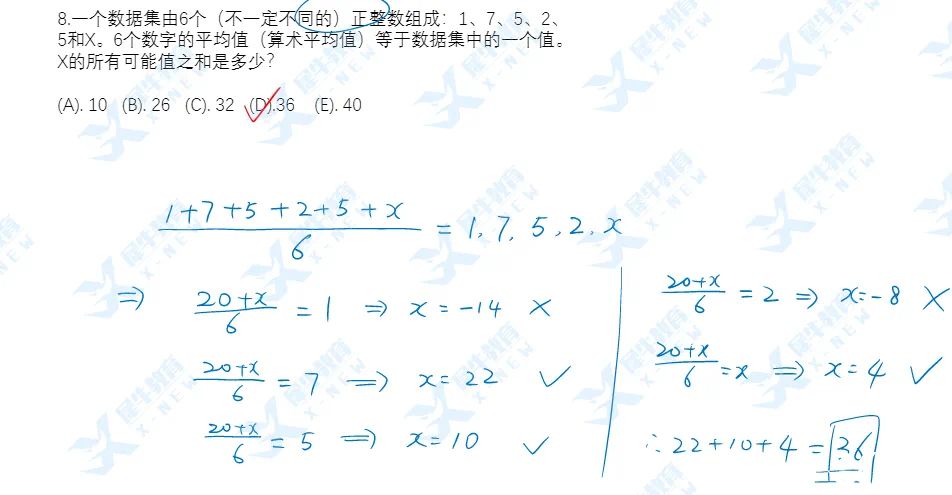 8.一个数据集由6个（不一定不同的）正整数组成：1、7、5、2、
5和X。6个数字的平均值（算术平均值）等于数据集中的一个值。
X的所有可能值之和是多少？
(A). 10 (B). 26 (C). 32 (D).36 (E). 40
(1+7+5+2+5+x)/6 = 1, 7, 5, 2, x
⇒ (20+x)/6 = 1 ⇒ x = -14 ×
(20+x)/6 = 7 ⇒ x = 22 ✓
(20+x)/6 = 5 ⇒ x = 10 ✓
(20+x)/6 = 2 ⇒ x = -8 ×
(20+x)/6 = x ⇒ x = 4 ✓
∴ 22+10+4 = 36
犀牛教育
X-NEW